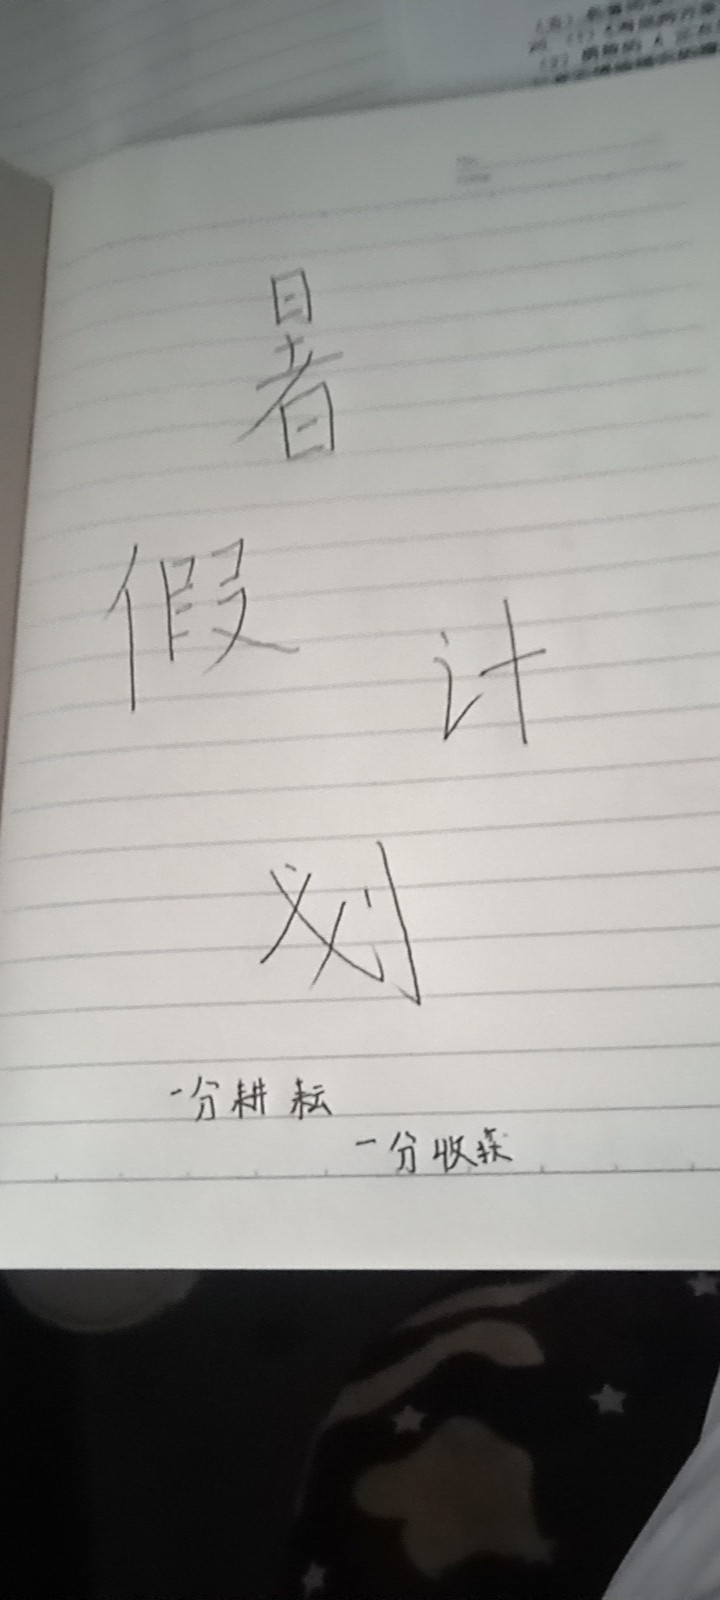 暑
假 计
划
一分耕耘
一分收获